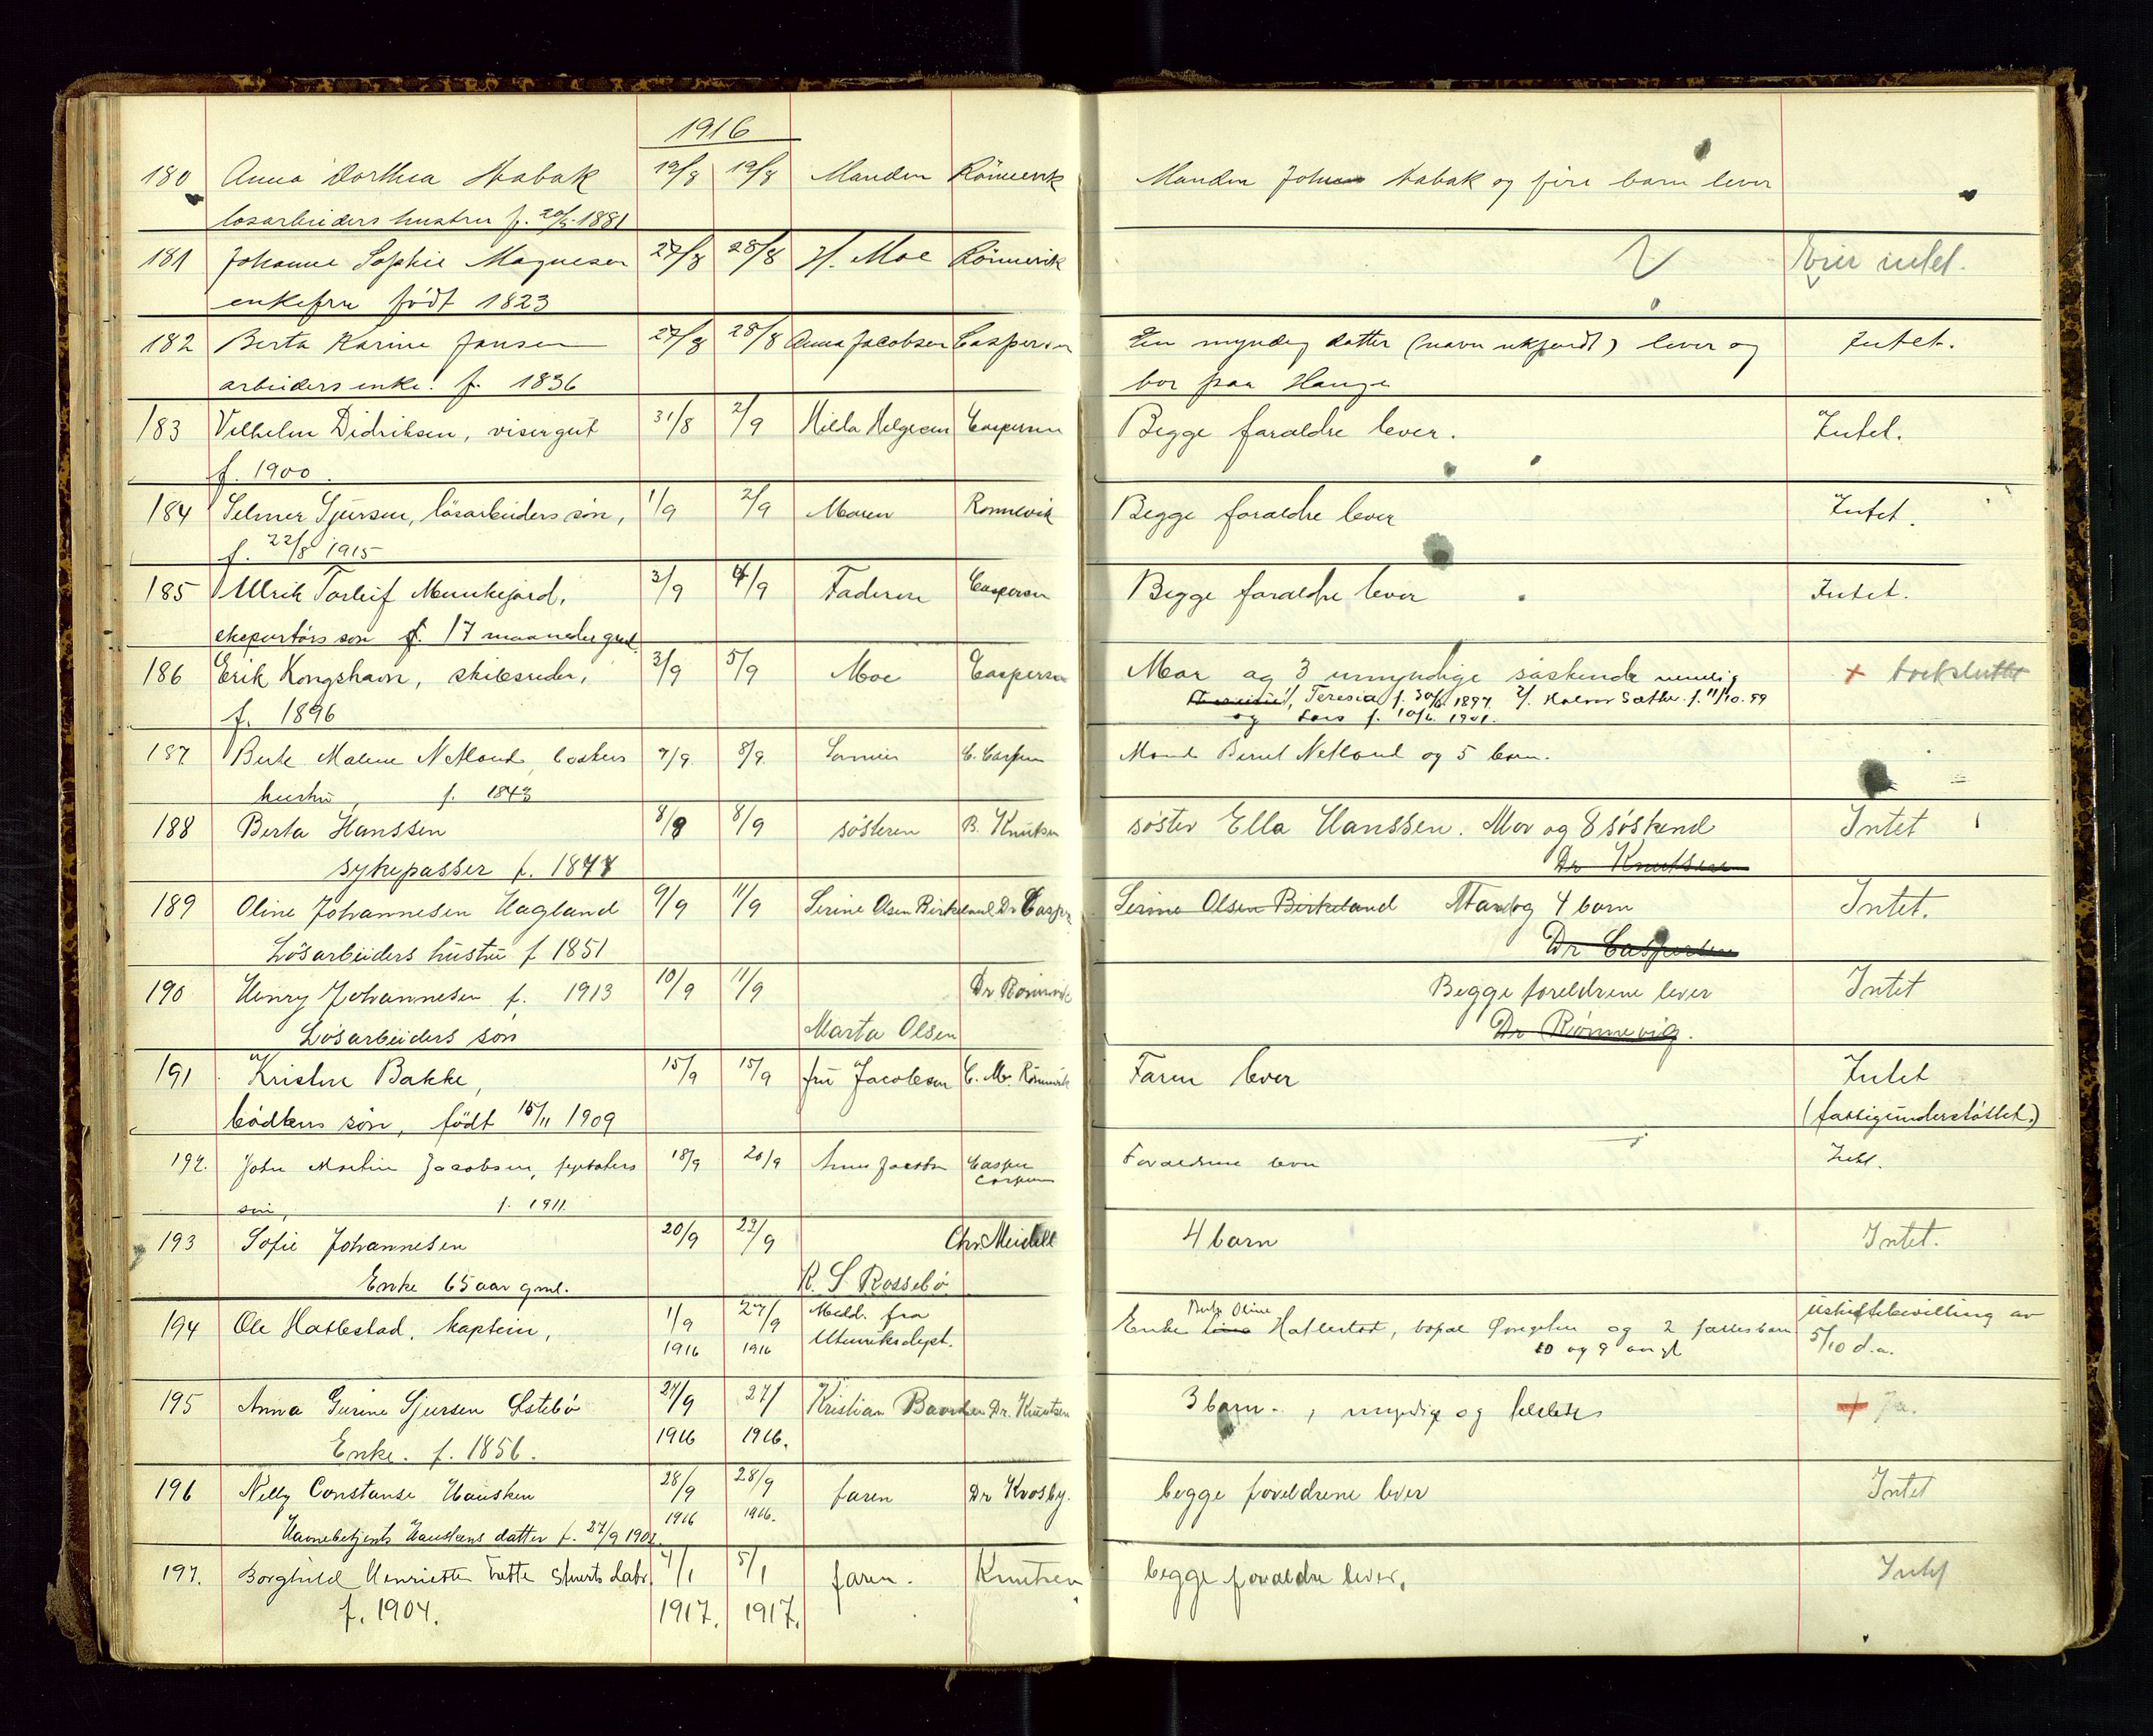 1916
180 Anna Dorthea Habak 19/8 19/8 Manden Rönnevik Manden Johan Habak og fire barn lever
løsarbeiders hustru f. 20/5 1881
181 Johanne Sophie Magnesen 27/8 28/8 H. Moe Rönnevik Eier intet.
enkefru født 1823
182 Berta Karine Jansen 27/8 28/8 Anna Jacobsen Caspersen En myndig datter (navn ukjendt) lever og Intet.
arbeiders enke. f. 1836 bor paa Hauge
183 Vilhelm Didriksen, visergut 31/8 2/9 Hilda Helgesen Caspersen Begge foraldre lever. Intet.
f. 1900.
184 Selmer Sjursen, lösarbeiders sön, 1/9 2/9 Moren Rønnevik Begge foraldre lever Intet.
f. 22/8 1915
185 Ulrik Torleif Munkejord, 3/9 4/9 Faderen Caspersen Begge foraldre lever Intet.
eksportörs son f. 17 maaneder gml.
186 Erik Kongshavn, skibsreder, 3/9 5/9 Moe Caspersen Mor og 3 umyndige söskende nemlig + boksluttet
f. 1896 1/, Teresia f. 30/6 1897 2/. f. 11/10.99
og Lars f. 10/6. 1901.
187 Berte Malene Netland, bødkers 7/9. 8/9. C. Caspersen Mand Bernt Netland og 5 barn.
hustru, f. 1843
188 Berta Hanssen 8/9 8/9 søsteren B. Knutsen søster Ella Hanssen. Mor og 8 søskend Intet
sykepasser f. 1877 Dr Knutsen
189 Oline Johannesen Hagland 9/9 11/9 Serine Olsen Birkeland Dr Casper Serine Olsen Birkeland Mand og 4 barn Intet.
Løsarbeiders hustru f 1851 Dr Caspersen
190 Henry Johannesen f. 1913 10/9 11/9 Dr Rönnevik Begge foreldrene lever Intet
Løsarbeiders søn Marta Olsen Dr Rønnevig.
191 Kristine Bakke, 15/9 15/9 fru Jacobsen C. M. Rönnevik Faren lever Intet
bödkers sön, födt 15/11 1909 (fattigunderstöttet.)
192. John Martin Jacobsen, 18/9 20/9 Anna Jacobsen Casper Foraldrene lever Intet.
søn, f. 1911. Caspersen
193 Sofie Johannesen 20/9 22/9 Chr. Meidell 4 barn Intet.
Enke 65 aar gml. K. S. Rossebø
194 Ole Hatlestad, kaptein, 1/9 27/9 Meld. fra Berte Oline uskiftebevilling av
1916 1916 Utenriksdept. Enke Hatlestad, bopæl og 2 fællesbarn 5/10 d.a.
10 og 9 aar gl
195 Anna Gurine Sjursen Østebø 24/9 27/ Kristian Dr. Knutsen 3 barn. , myndige og + Ja.
Enke. f. 1856. 1916 1916.
196 Nelly Constanse Hausken 28/9 28/9 faren Dr Krosby. begge foreldrene lever Intet
Havnebetjents Hauskens datter f. 27/9 1902. 1916 1916.
197. Borghild Henriette Tætte stuerts datr. 4/1 5/1 faren. Knutsen begge foraldre lever. Intet
f. 1904. 1917. 1917.